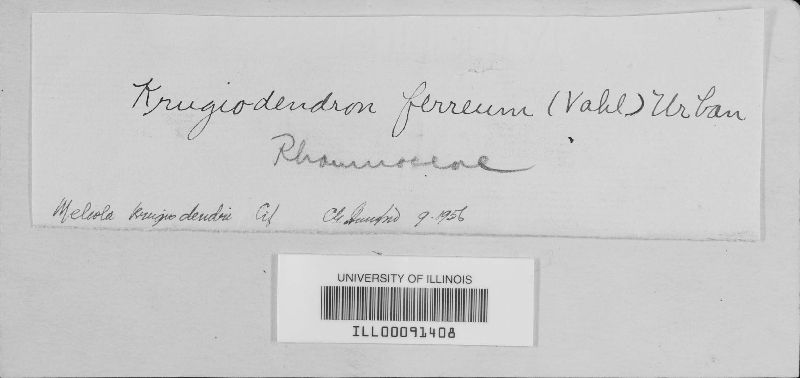 Krugiodendron ferreum (Vahl) Urban
Rhamnaceae
Meliola Krugiodendri Cif 9-1956
UNIVERSITY OF ILLINOIS
ILL00091408